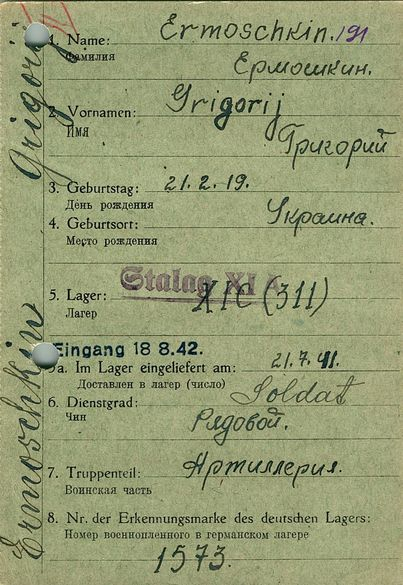 1. Name: Ermoschkin. 191
Фамилия Ермошкин.
2. Vornamen: Grigorij
Имя Григорий
3. Geburtstag: 21. 2. 19.
День рождения
4. Geburtsort: Украина.
Место рождения
Stalag XI A
5. Lager: XI C (311)
Лагер
Eingang 18 8.42.
5a. Im Lager eingeliefert am: 21. 7. 41.
Доставлен в лагер (число)
6. Dienstgrad: Soldat
Чин Рядовой.
7. Truppenteil: Артиллерия.
Воинская часть
8. Nr. der Erkennungsmarke des deutschen Lagers:
Номер военнопленного в германском лагере
1573.
Ermoschkin Grigorij